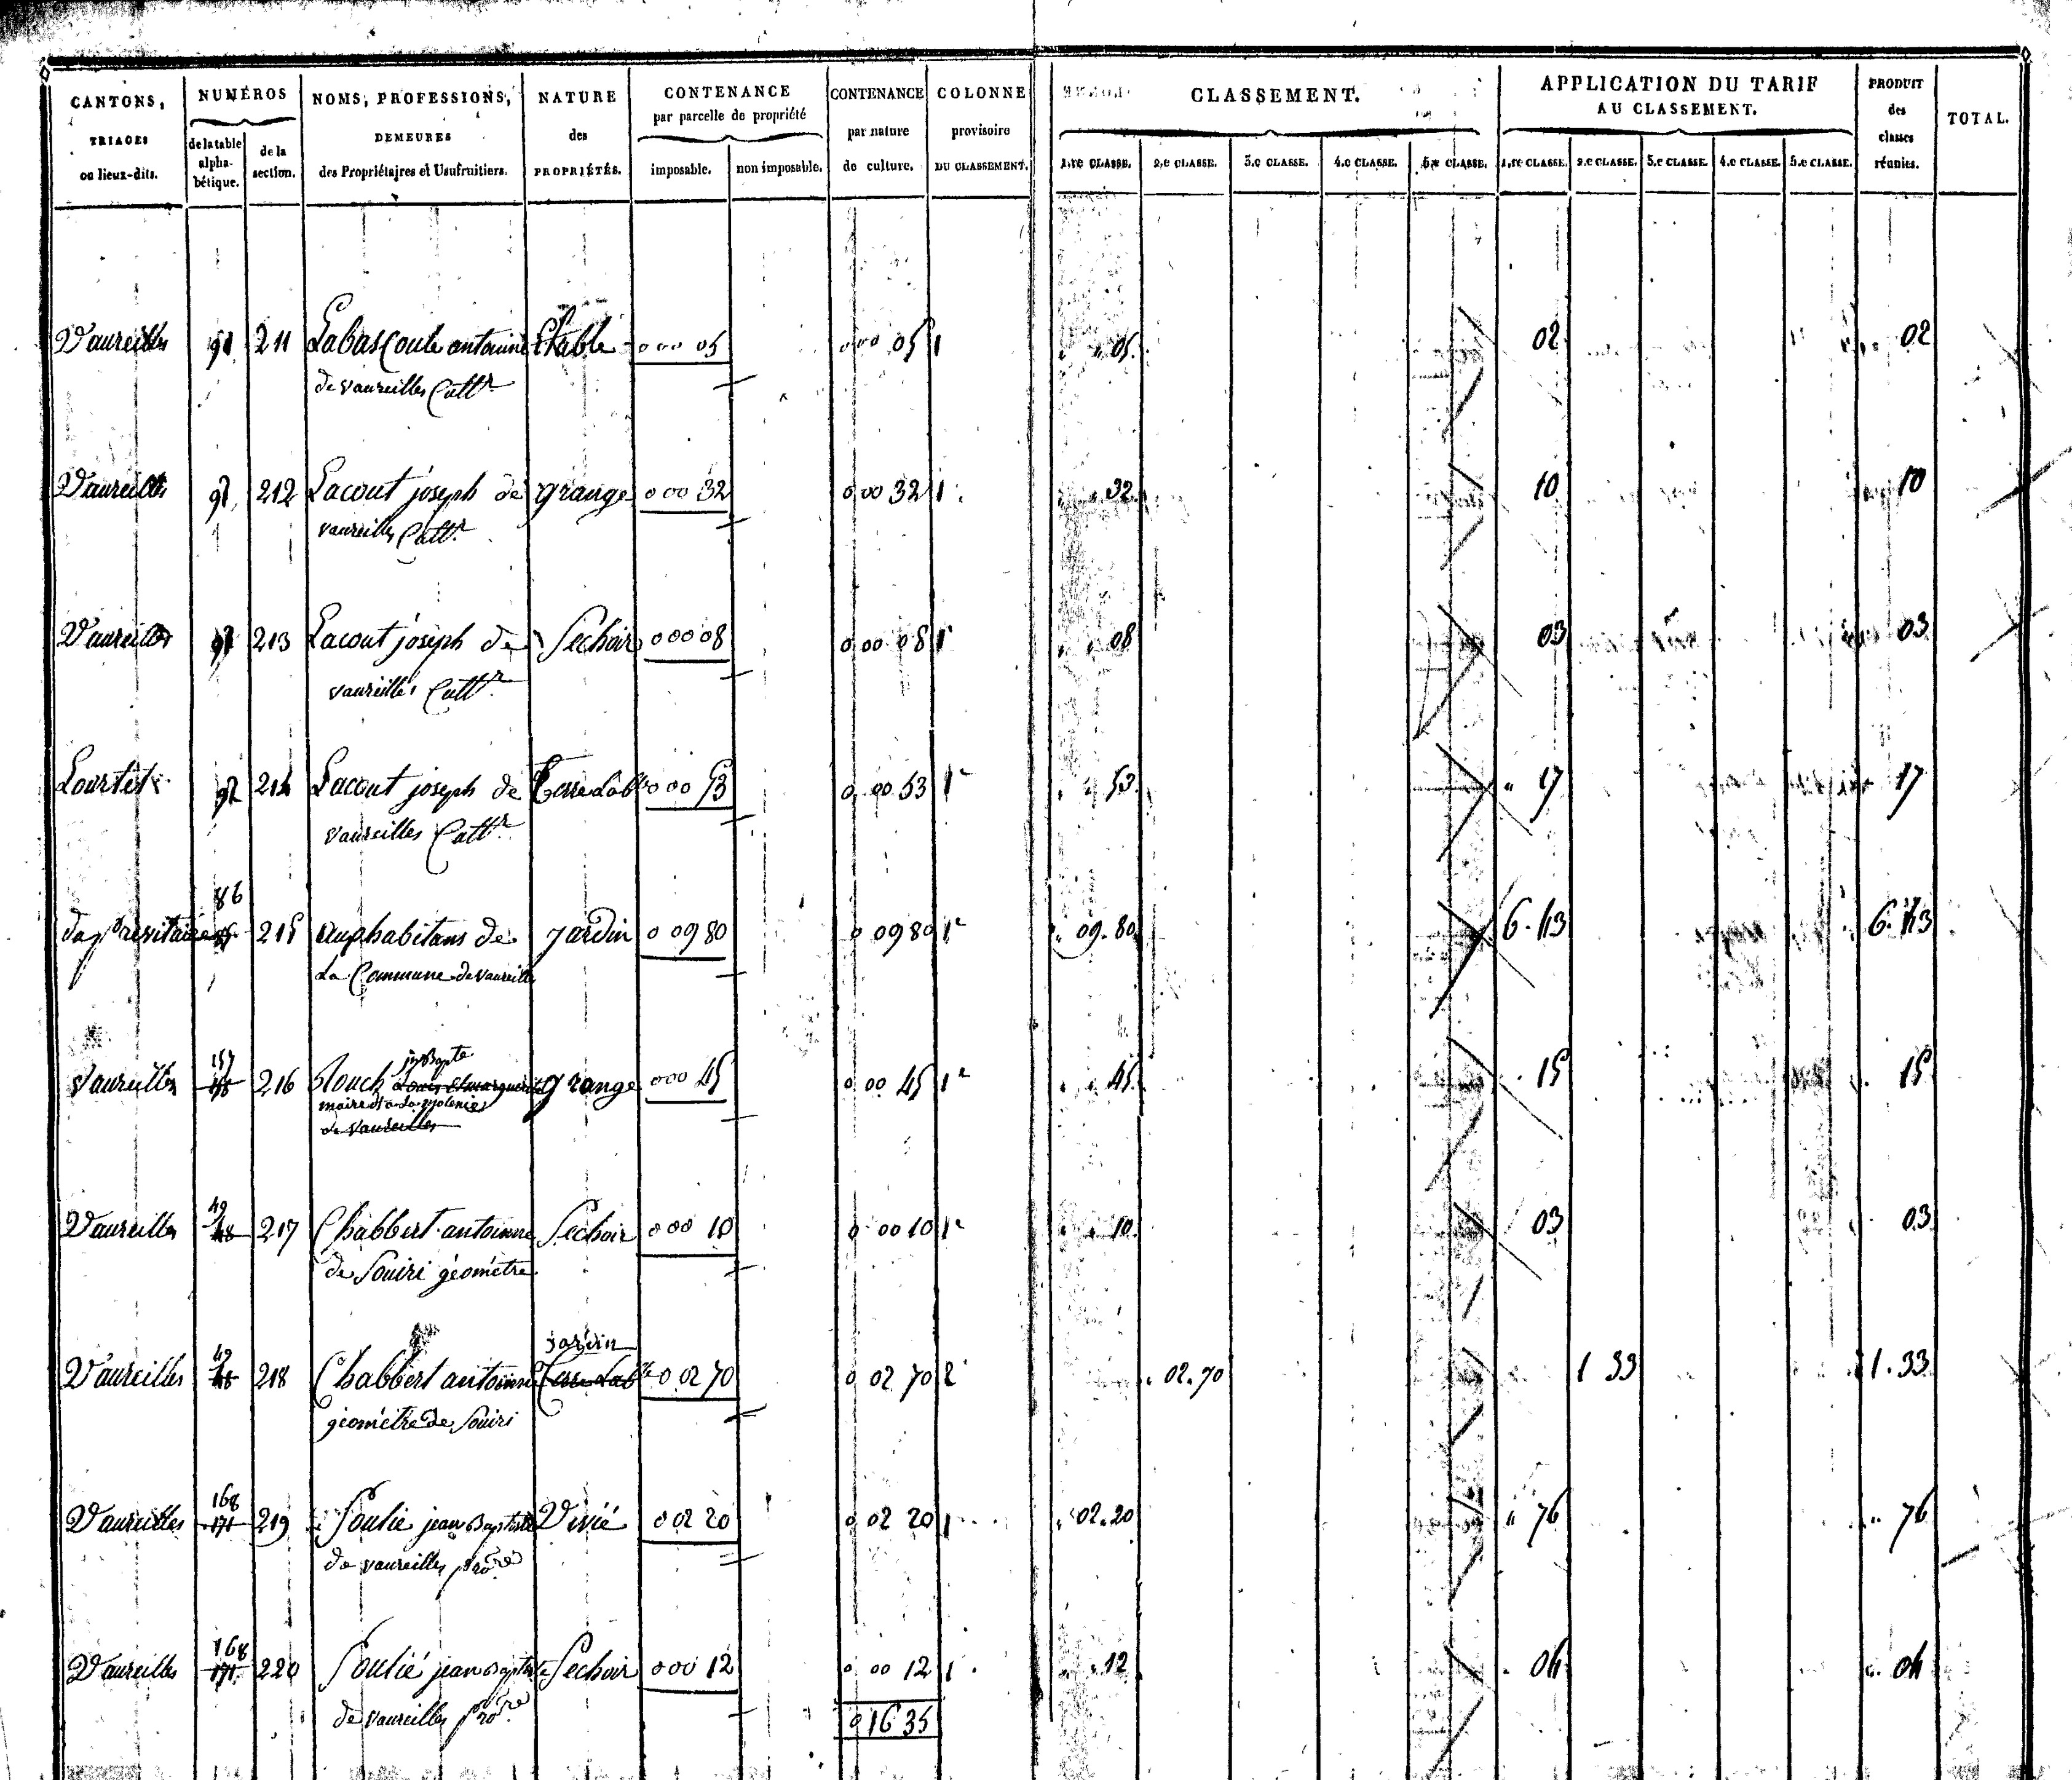 CANTONS, TRIAGES ou lieux-dits. NUMÉROS de la table alphabétique. de la section. NOMS, PROFESSIONS, DEMEURES des Propriétaires et Usufruitiers. NATURE des PROPRIÉTÉS. CONTENANCE par parcelle de propriété imposable. non imposable. CONTENANCE par nature de culture. COLONNE provisoire DU CLASSEMENT. CLASSEMENT. 1.re CLASSE. 2.e CLASSE. 3.e CLASSE. 4.e CLASSE. 5.e CLASSE. APPLICATION DU TARIF AU CLASSEMENT. 1.re CLASSE. 2.e CLASSE. 3.e CLASSE. 4.e CLASSE. 5.e CLASSE. PRODUIT des classes réunies. TOTAL.
Vaureilles 91 211 Labascoule antoine Etable 0 00 05 0 00 05 1 05. 02 02
de vaureilles Cultr
Vaureilles 92 212 Lacout joseph de grange 0 00 32 0 00 32 1 32. 10 10
vaureilles Cultr
Vaureilles 92 213 Lacout joseph de Sechoir 0 00 08 0 00 08 1 08 03 03
vaureilles Cultr
92 214 Lacout joseph de Terre Lable 0 00 53 0 00 53 1e 53. 17 17
vaureilles Cultr
86
215 aux habitans de jardin 0 09 80 0 09 80 1e 09.80 6.43 6.43
La Commune de vaureilles
157 jn Bapte
216 Louis et marguerite grange 0 00 45 0 00 45 1e 45. 15 15
de Vaureilles
49
Vaureilles 48 217 Chabbert antoine Sechoir 0 00 10 0 00 10 1e 10. 03 03
de Souiri géométre
49 jardin
Vaureilles 48 218 Chabbert antoine Terre Lable 0 02 70 0 02 70 2 02.70 1 33 1.33
géométre de Souiri
168
Vaureilles 171 219 Soulié jean Baptiste 0 02 20 0 02 20 1 02.20 76 76
de vaureilles pro.re
168
Vaureilles 171 220 Soulié jean Baptiste Sechoir 0 00 12 0 00 12 1 12 04 04
de vaureilles pro.re
0 16 35